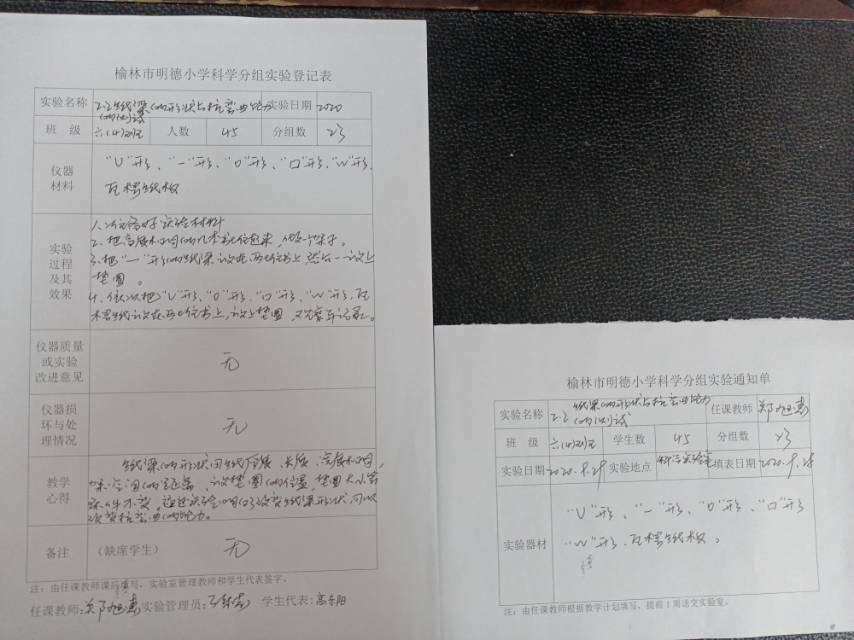 榆林市明德小学科学分组实验登记表
实验名称 2.2 纸梁的形状与抗弯曲能力的测试 实验日期 2020
班 级 六(4)班 人数 45 分组数 23
仪器材料 "U"形、"一"形、"O"形、"口"形、"W"形、
瓦楞纸板
实验过程及其效果
1.准备好实验材料
2.把高度相同的几本书立起来,做
3.把"一"形的纸梁 放在两 书上 然后一 放上
垫圈。
4.依次把"U"形、"O"形、"口"形、"W"形、瓦
楞纸 放在 书上,放上垫圈,观察并记录。
仪器质量或实验改进意见 无
仪器损坏与处理情况 无
教学心得
纸梁的形状用纸厚度、长度、宽度相同,
放垫圈的位置 垫圈大小等
条件不变。通过实验 改变纸梁形状,可以
改变抗弯曲的能力。
备注 (缺席学生) 无
注:由任课教师课后填写,实验室管理教师和学生代表签字。
任课教师: 实验管理员: 学生代表:
榆林市明德小学科学分组实验通知单
实验名称 2.2 纸梁的形状与抗弯曲能力的测试 任课教师
班 级 六(4)班 学生数 45 分组数 23
实验日期 2020.9.29 实验地点 科学实验室 填表日期 2020.9.28
实验器材 "U"形、"一"形、"O"形、"口"形
"W"形、瓦楞纸板。
注:由任课教师根据教学计划填写,提前1周送交实验室。